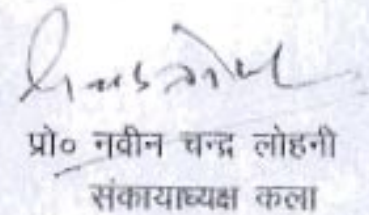 प्रो० नवीन चन्द्र लोहनी
संकायाध्यक्ष कला